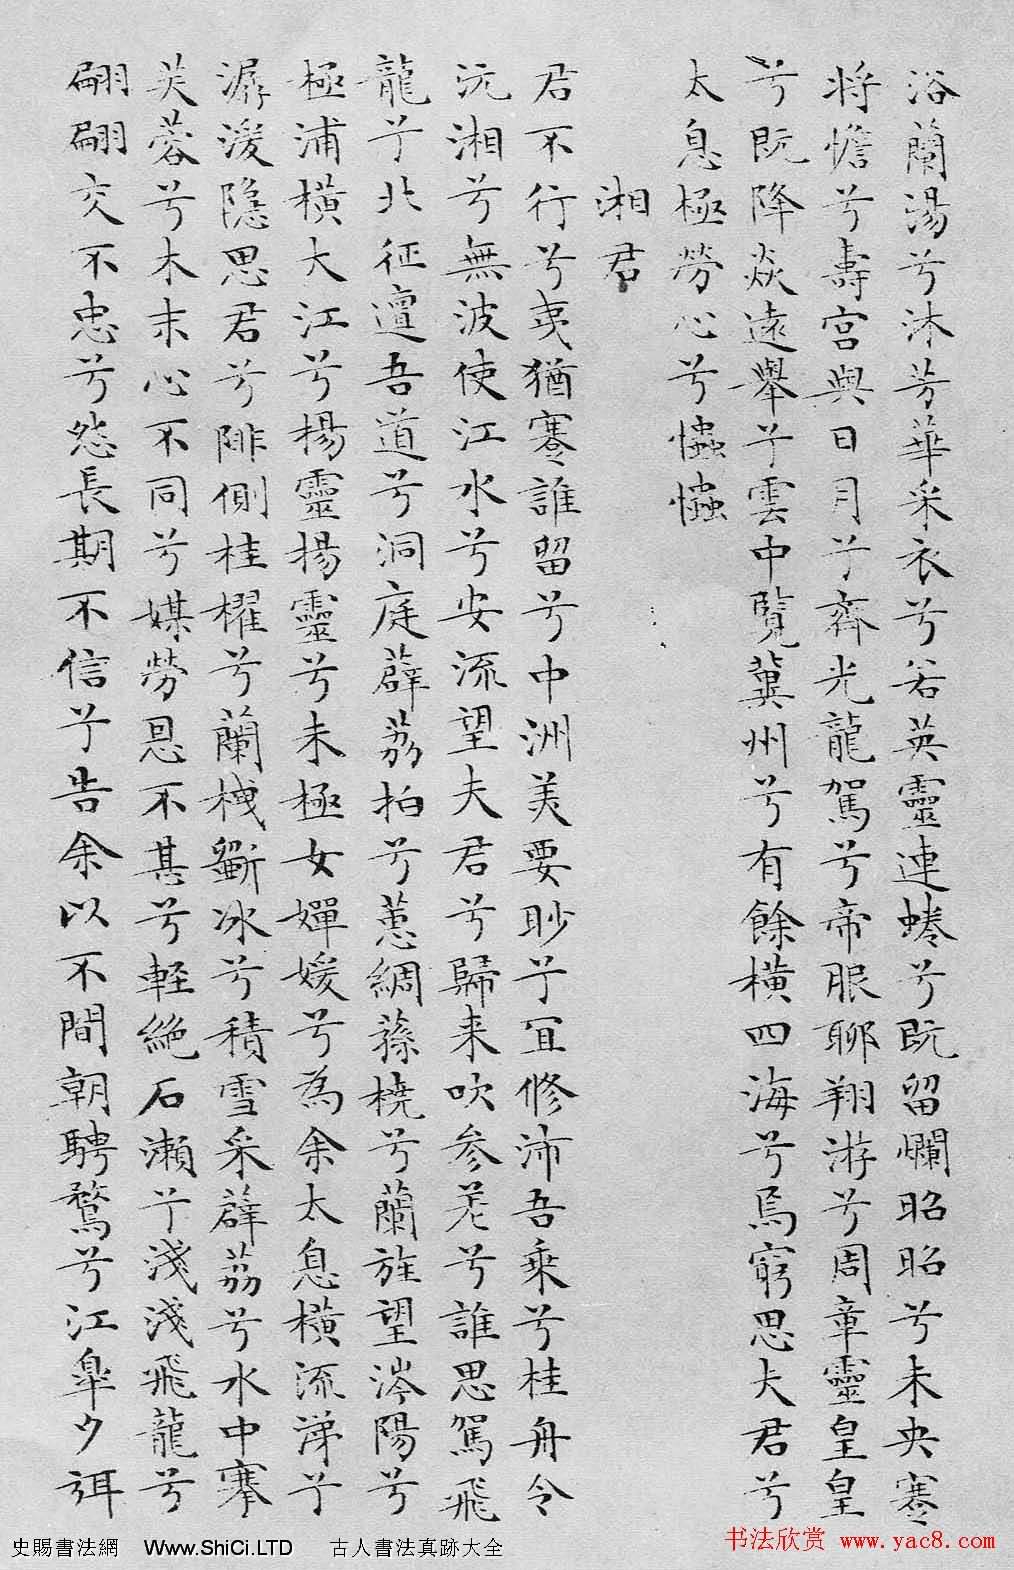 浴蘭湯兮沐芳華采衣兮若英靈連蜷兮既留爛昭昭兮未央蹇
將憺兮壽宮與日月兮齊光龍駕兮帝服聊翔游兮周章靈皇皇
兮既降猋遠舉兮雲中覽冀州兮有餘橫四海兮焉窮思夫君兮
太息極勞心兮𢥞𢥞
湘君
君不行兮夷猶蹇誰留兮中洲美要眇兮宜修沛吾乘兮桂舟令
沅湘兮無波使江水兮安流望夫君兮歸来吹参差兮誰思駕飛
龍兮北征邅吾道兮洞庭薜荔拍兮蕙綢蓀橈兮蘭旌望涔陽兮
極浦橫大江兮揚靈揚靈兮未極女嬋媛兮為余太息橫流涕兮
潺湲隱思君兮陫側桂櫂兮蘭枻斲冰兮積雪采薜荔兮水中搴
芙蓉兮木末心不同兮媒勞恩不甚兮輕絕石瀨兮淺淺飛龍兮
翩翩交不忠兮怨長期不信兮告余以不間朝騁騖兮江皋夕弭
史賜書法網 Www.ShiCi.LTD 古人書法真跡大全
书法欣赏 www.yac8.com